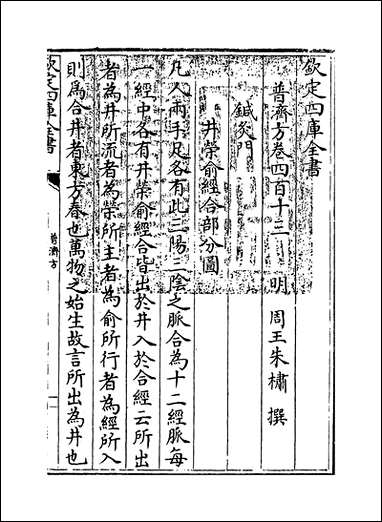 欽定四庫全書
普濟方卷四百十三
明 周王朱橚 撰
鍼灸門
井滎俞經合部分圖
凡人兩手足各有此三陽三陰之脈合為十二經脈每
一經中各有井滎俞經合皆出於井入於合經云所出
者為井所流者為滎所主者為俞所行者為經所入
則為合井者東方春也萬物之始生故言所出為井也
欽定四庫全書
普濟方